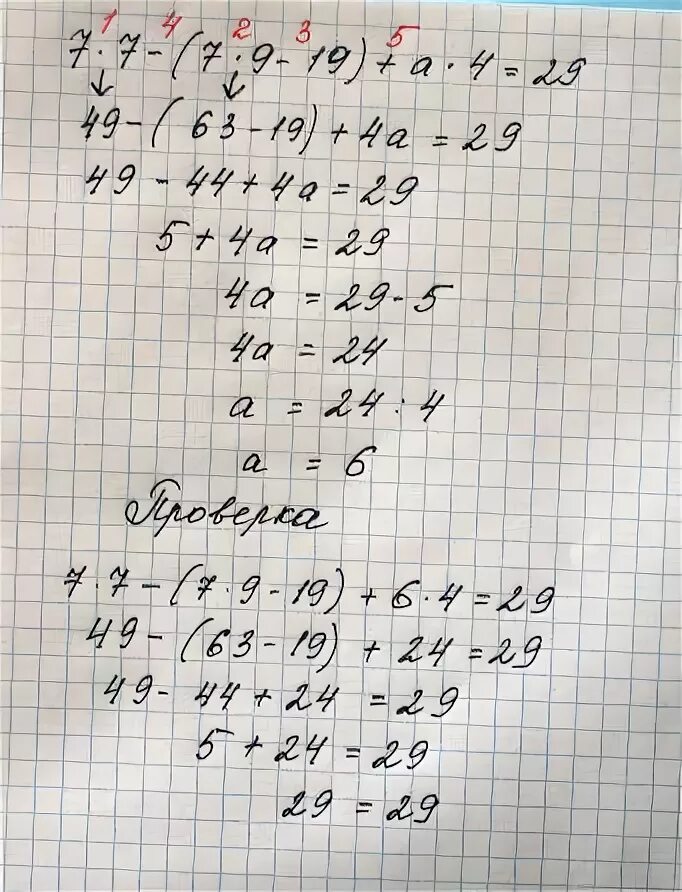 1 4 2 3 5
7·7-(7·9-19)+a·4=29
↓ ↓
49-(63-19)+4a=29
49-44+4a=29
5+4a=29
4a=29-5
4a=24
a=24:4
a=6
Проверка
7·7-(7·9-19)+6·4=29
49-(63-19)+24=29
49-44+24=29
5+24=29
29=29